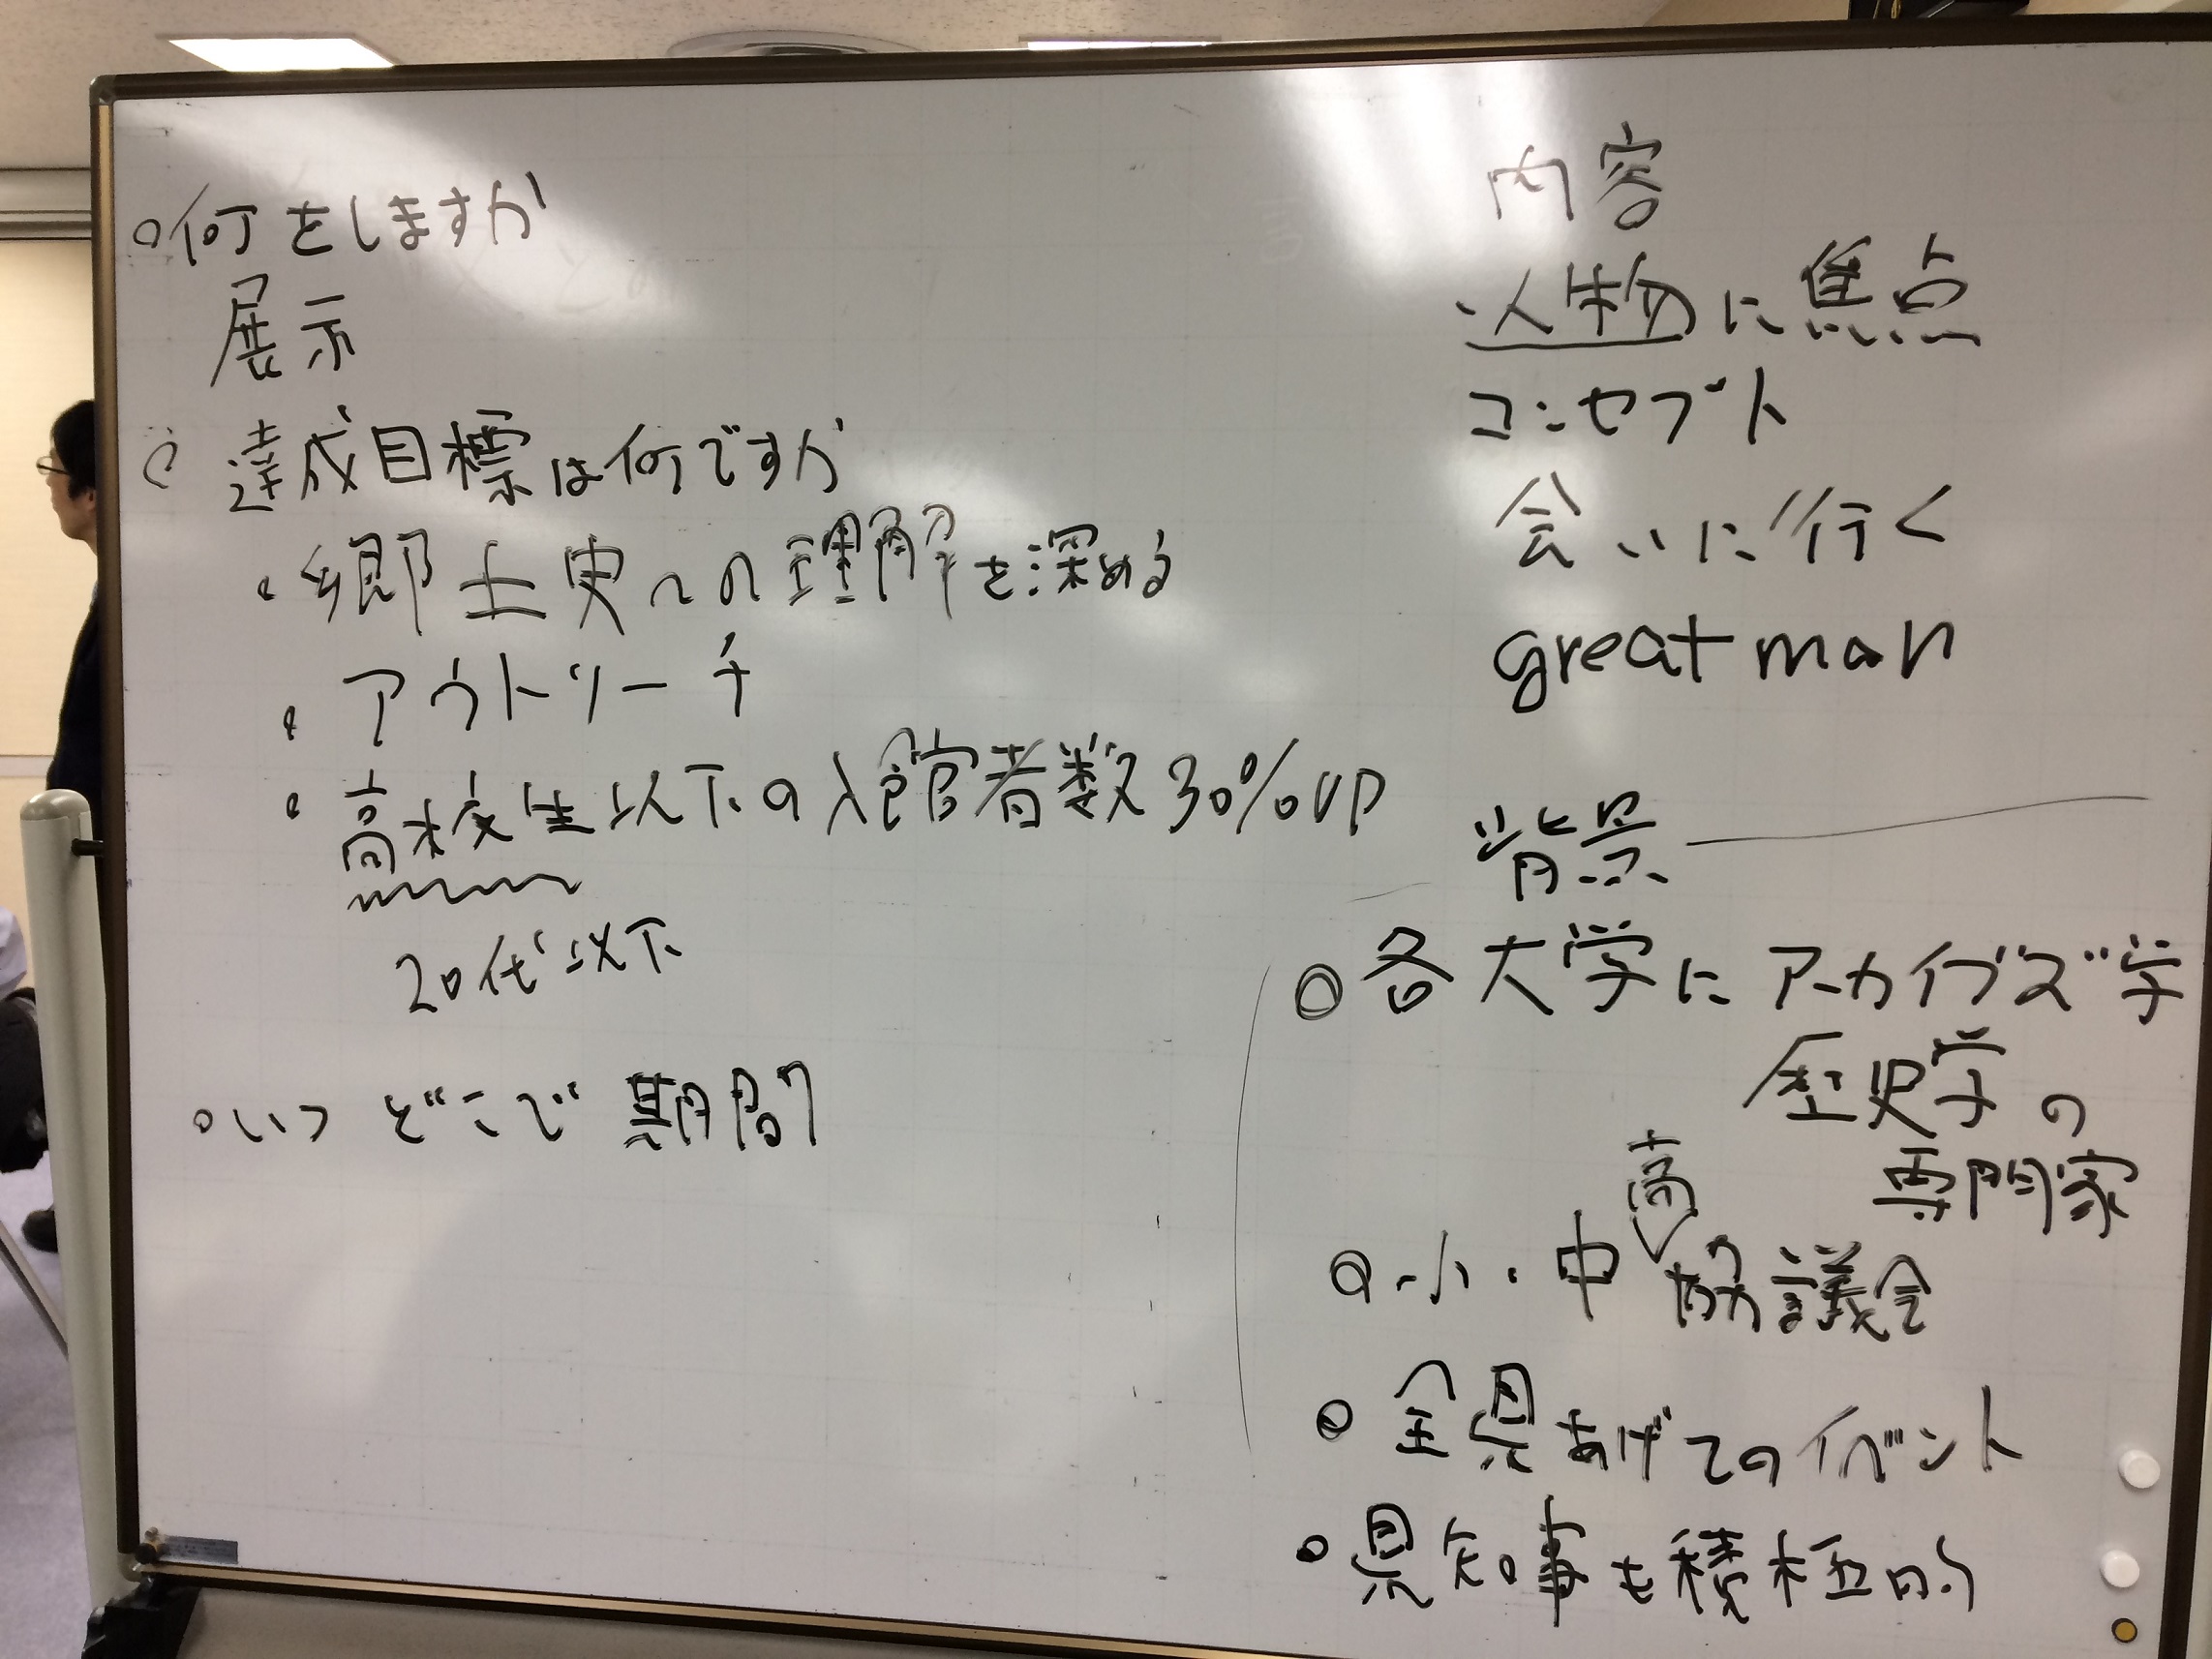 ○何をしますか
展示
○達成目標は何ですか
・郷土史への理解を深める
・アウトリーチ
・高校生以下の入館者数30%UP
20代以下
○いつ どこで 期間
内容
・人物に焦点
コンセプト
会いに行く
great man
背景
◎各大学にアーカイブズ学
歴史学の
専門家
高
○小・中 協議会
○全県あげてのイベント
○県知事も積極的